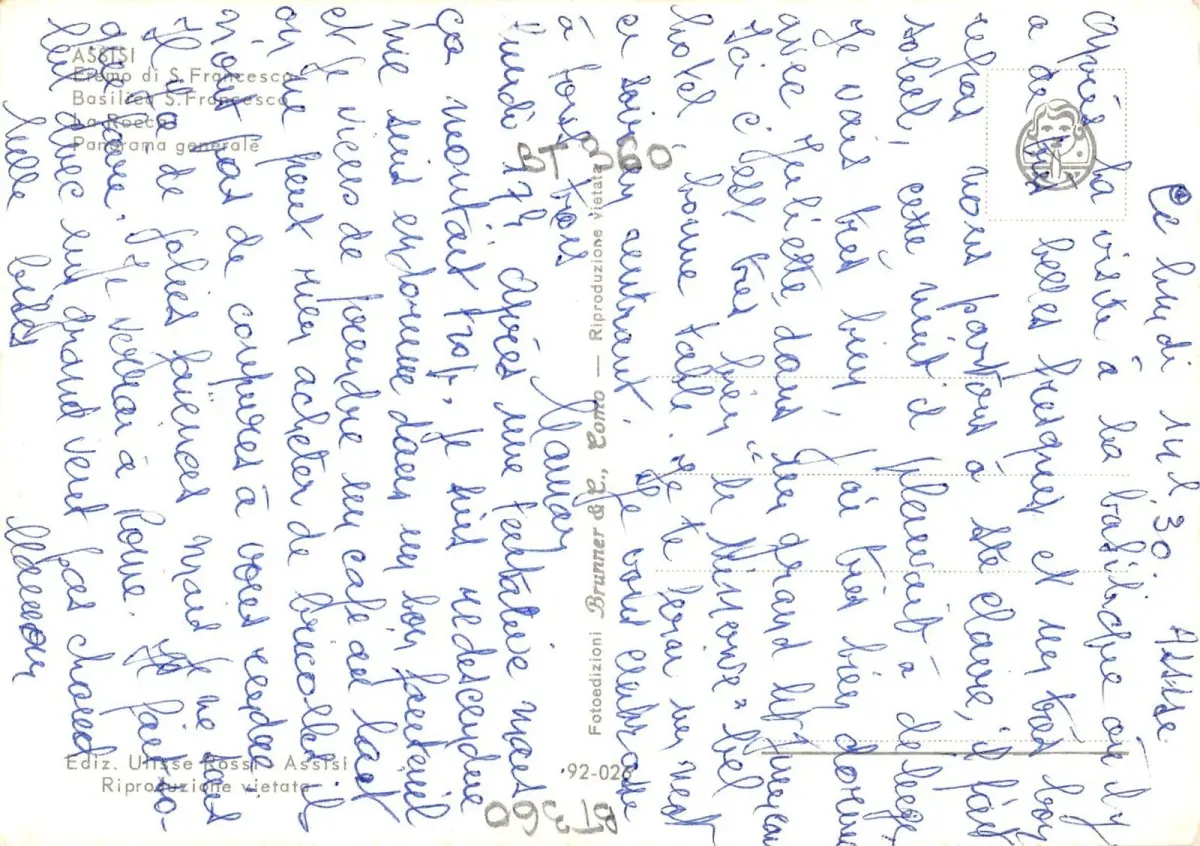 Ce lundi 11 h 30. Assise.
Après la visite à la basilique où il y
a de très belles fresques et un très bon
repas nous partons à Ste Claire, il fait
soleil, cette nuit il pleuvait à
Je vais très bien, j'ai très bien dormi
avec Juliette dans un grand lit
Ici c'est très bien "le Minerve" bel
hotel bonne table. Je te ferai un mot
ce soir en rentrant. Je vous embrasse
à tous trois
Maman
Lundi 17h après une tentative mais
ça montait trop, je suis redescendue
me suis endormie dans un bon fauteuil
et je viens de prendre un café au lait
on ne peut rien acheter de bricolles il
pas de à vous
Il y a de jolies faïences mais je ne sais
Je verrai à Rome. Il fait so-
leil avec un grand vent pas chaud
Mille bises Maman
ASSISI
Eremo di S. Francesco
Basilica S. Francesco
La Rocca
Panorama generale
BT 360
Fotoedizioni Brunner & C., Como — Riproduzione vietata
Ediz. Ulisse Rossi - Assisi
Riproduzione vietata
92-026
BT360